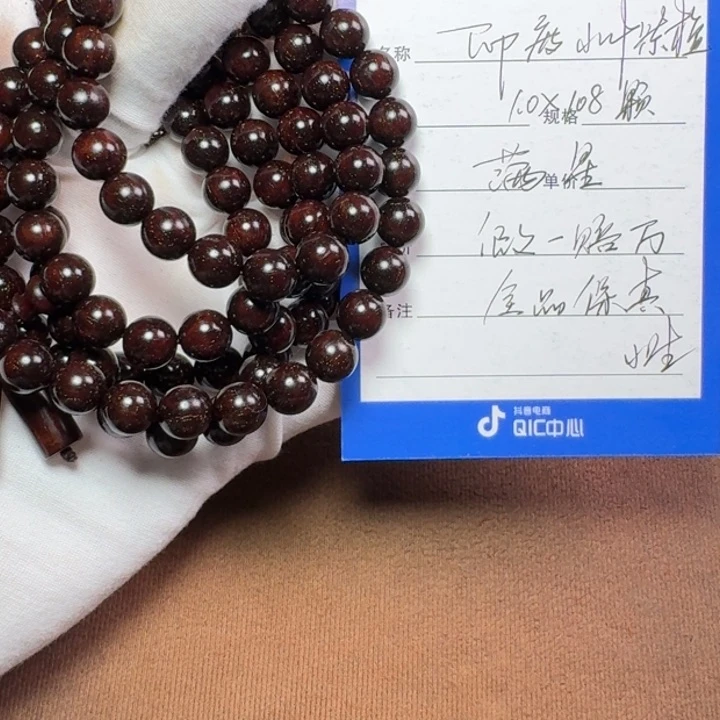 名称 印度小叶紫檀
1.0×108颗 规格
满星 单
假一赔万
备注 全品保真
抖音电商
QIC中心